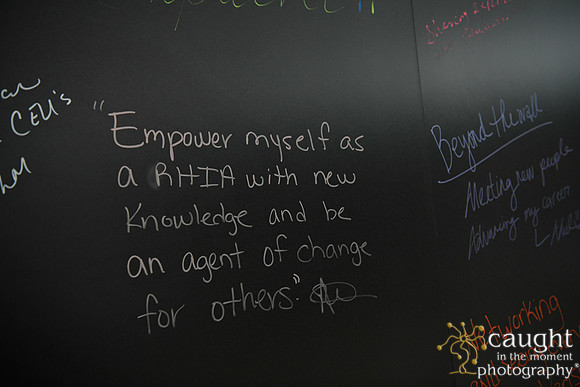 CEU's
"Empower myself as
a RHIA with new
Knowledge and be
an agent of change
for others."
Sharing
Beyond the wall
Meeting new people
Advancing my career
Networking
caught
in the moment
photography